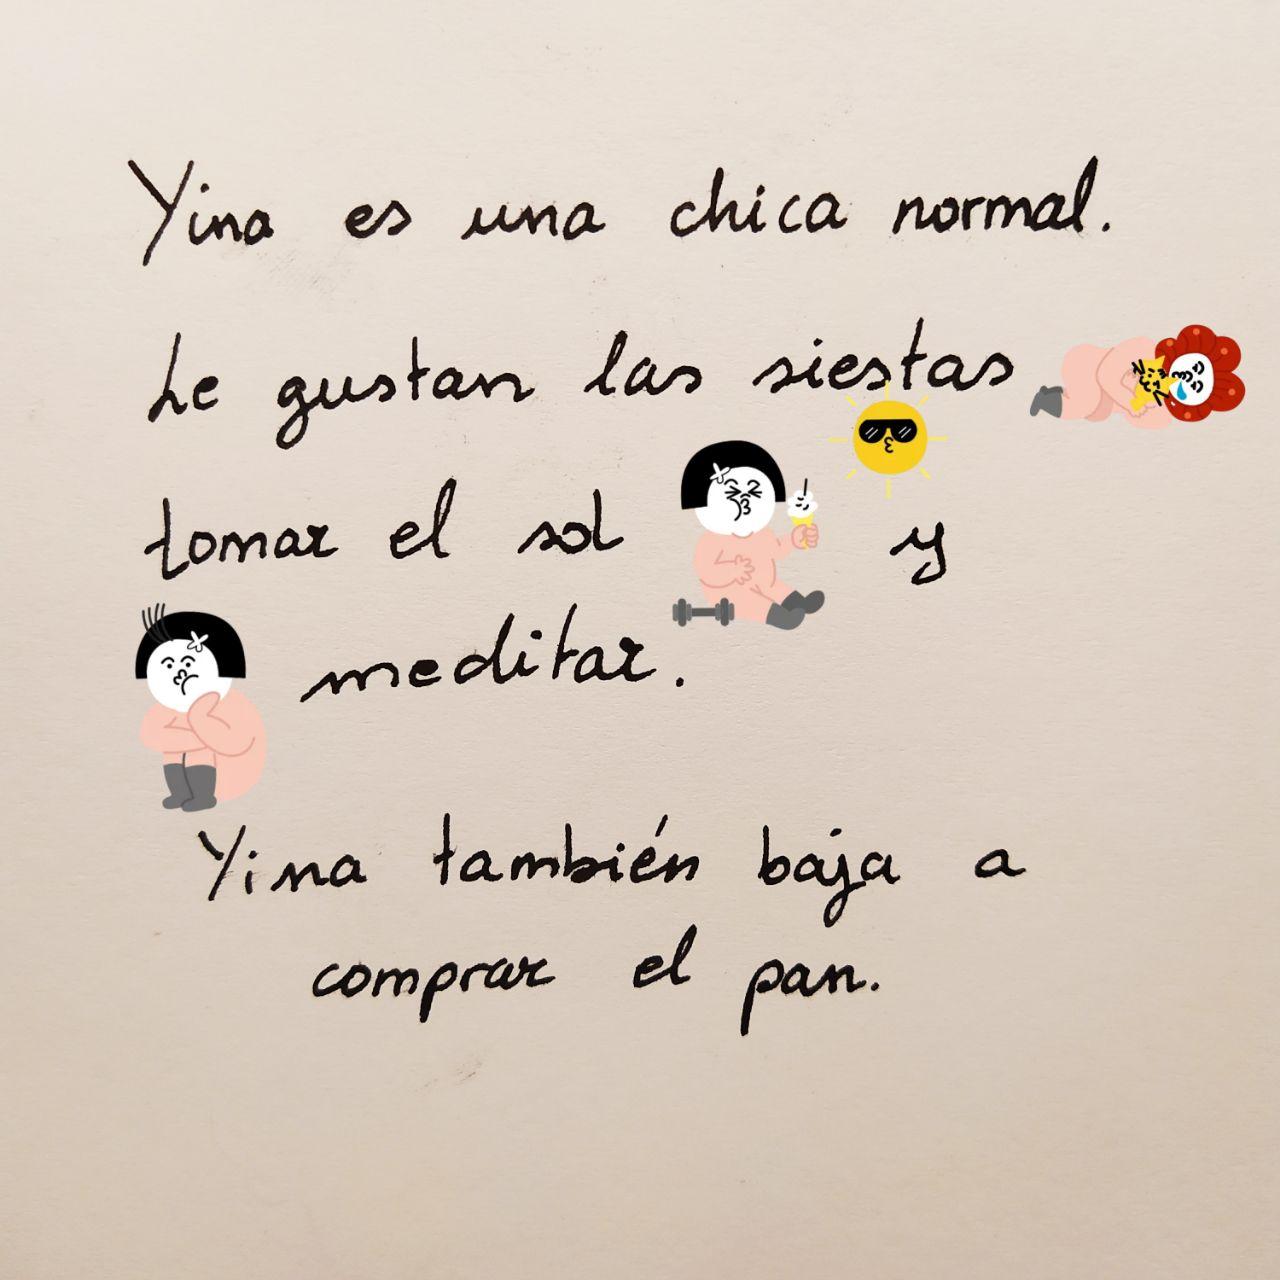 Yina es una chica normal.
Le gustan las siestas
tomar el sol y
meditar.
Yina también baja a
comprar el pan.